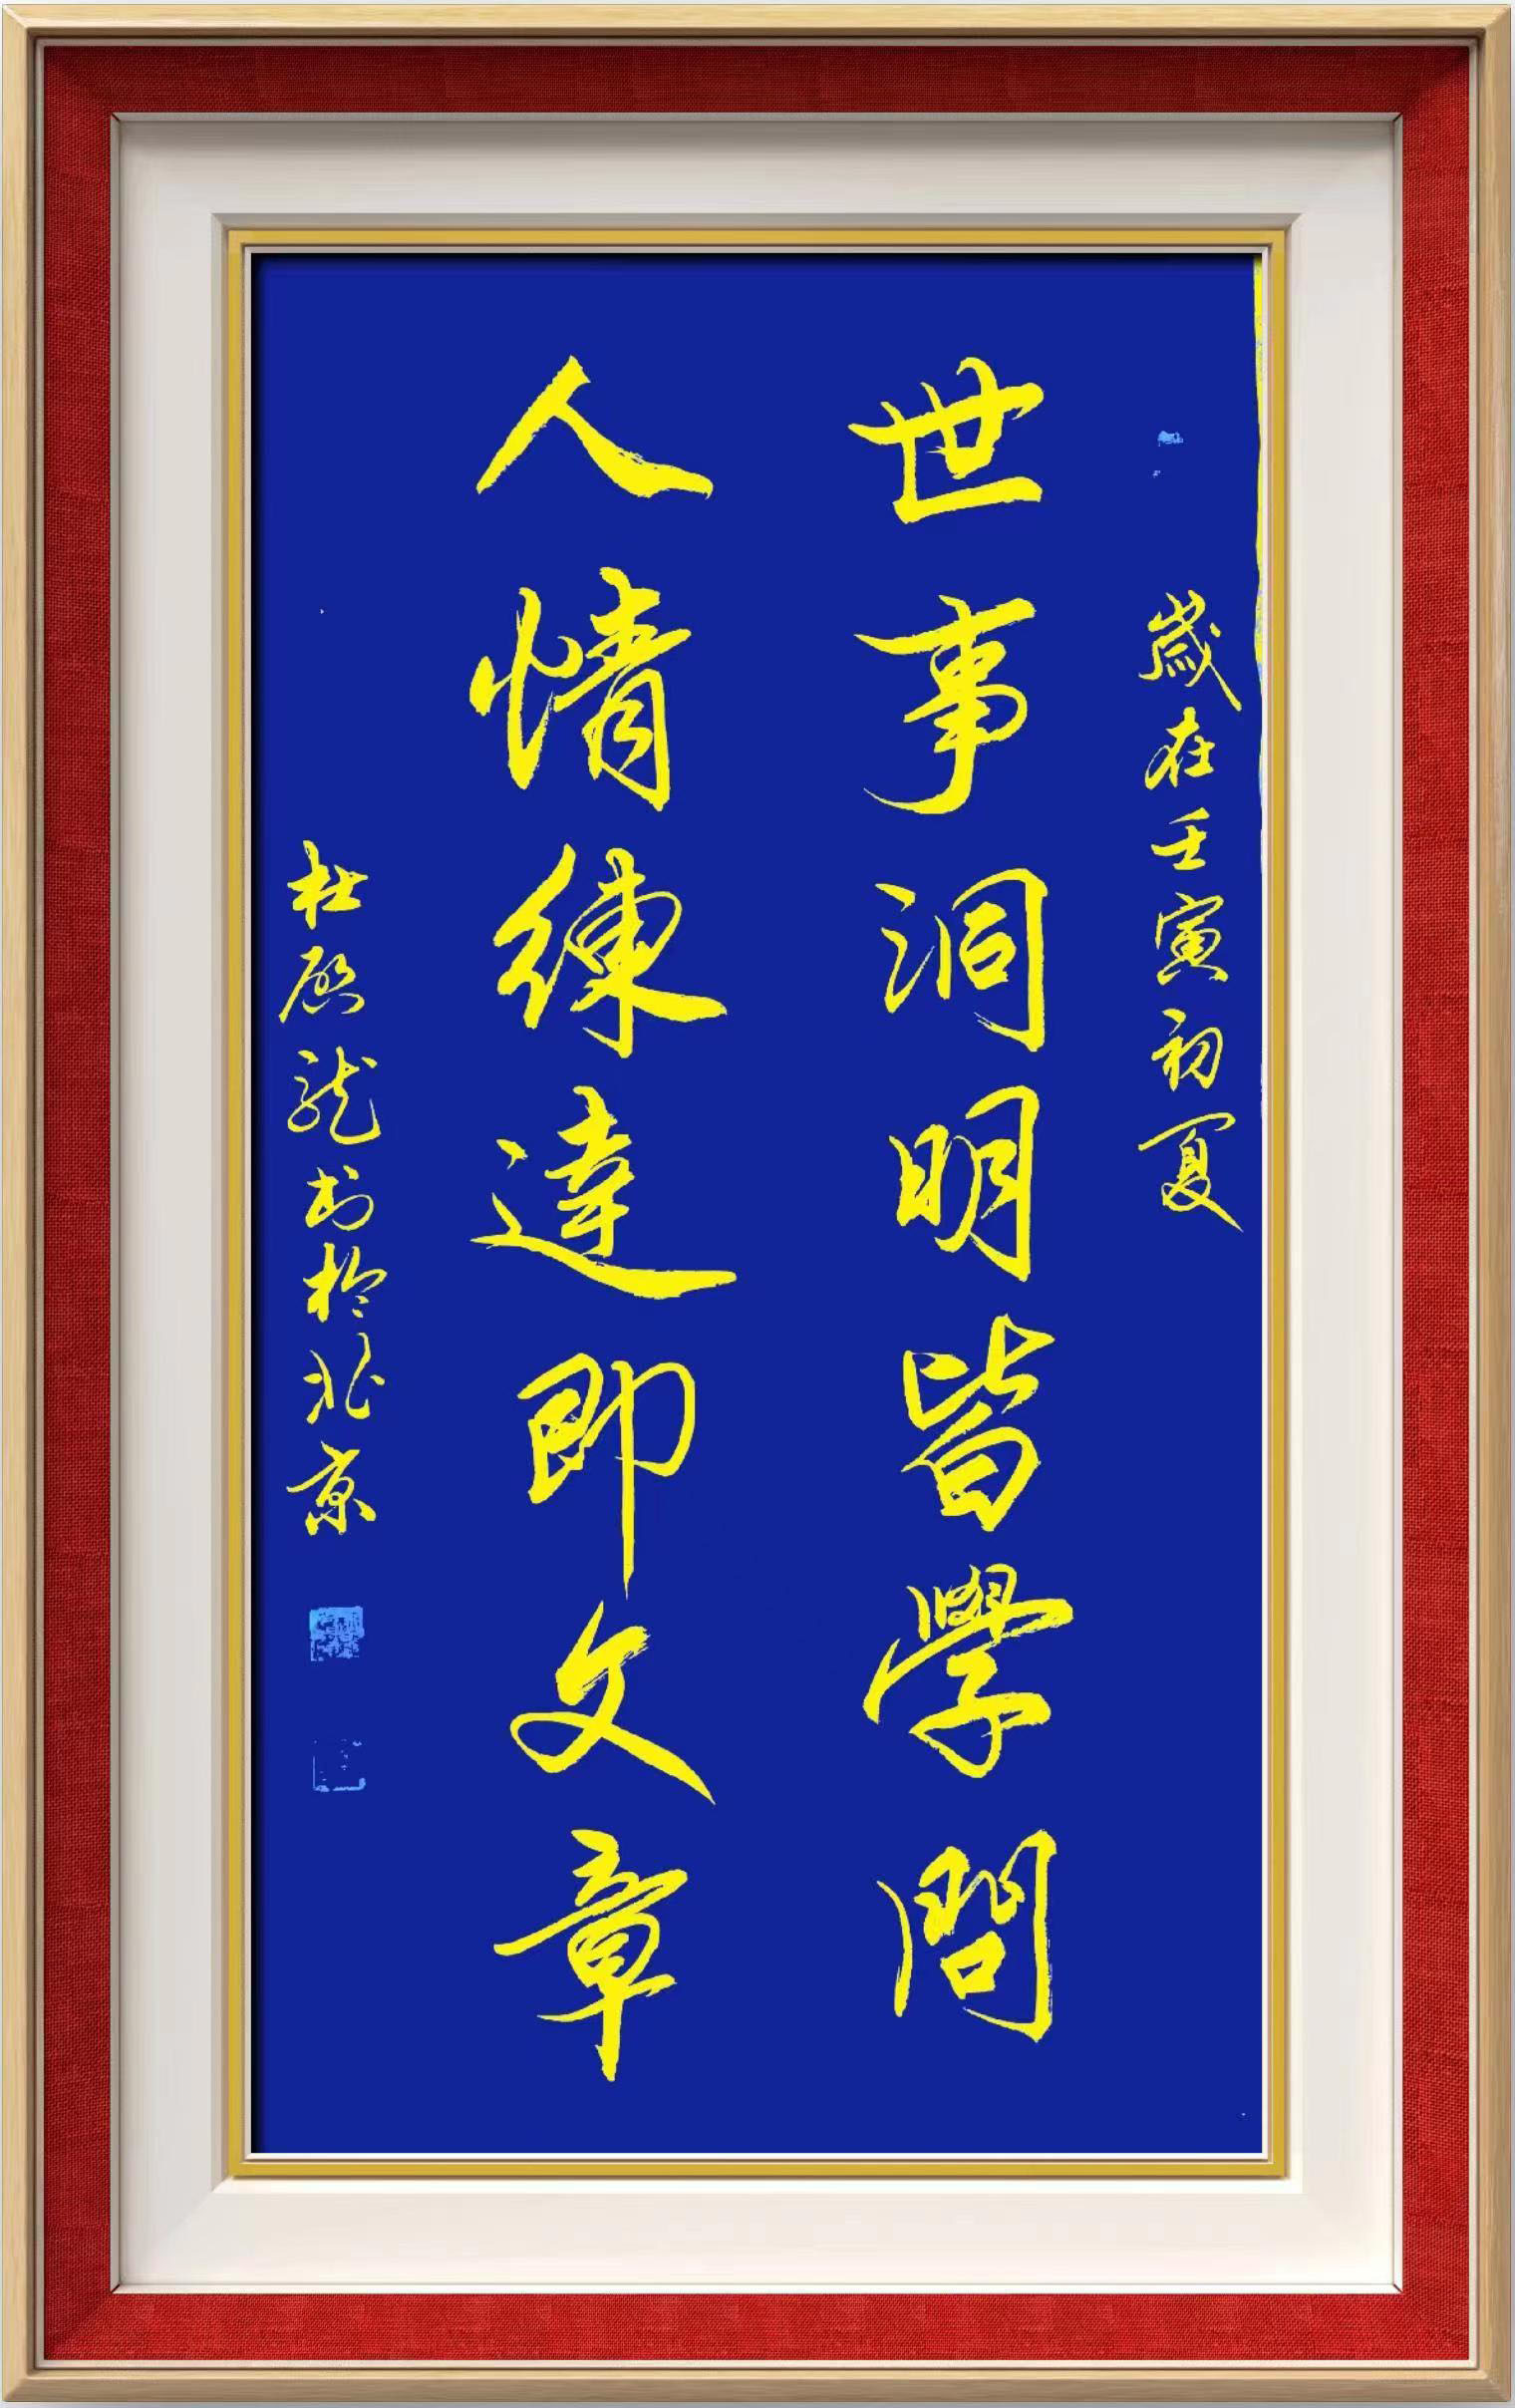 歲在壬寅初夏
世事洞明皆學問
人情練達即文章
杜啟龍書於北京